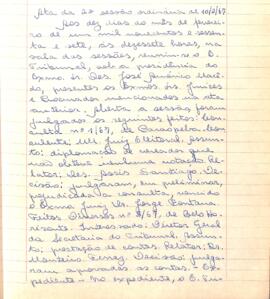 Ata da 2ª sessão ordinária de 10/2/67
Aos dez dias do mês de feverei-
ro de um mil novecentos e sessen-
ta e sete, às dezessete horas, na
sala das sessões, reuniu-se o E.
Tribunal, sob a presidência do
Exmo. Sr. Des. José Américo Macê-
do, presentes os Exmos. Srs. Juízes
e Procurador mencionados na ata
anterior. Aberta a sessão, foram
julgados os seguintes feitos: Con-
sulta nº 1/67, de Consu-
lente: MM. Juiz Eleitoral. Assun-
to: diplomação de vereador que
não obteve nenhuma votação. Re-
lator: Des. Assis Santiago. De-
cisão: julgaram, em preliminar,
prejudicada a consulta, vencido
o Exmo. Juiz Dr. Jorge Fontana.
Feitos Diversos nº 8/67, de Belo Ho-
rizonte. Interessado: Diretor Geral
da Secretaria do Tribunal. Assun-
to: prestação de contas. Relator: Des.
Monteiro Ferraz. Decisão: julga-
ram aprovadas as contas. - Ex-
pediente - No expediente, o E.